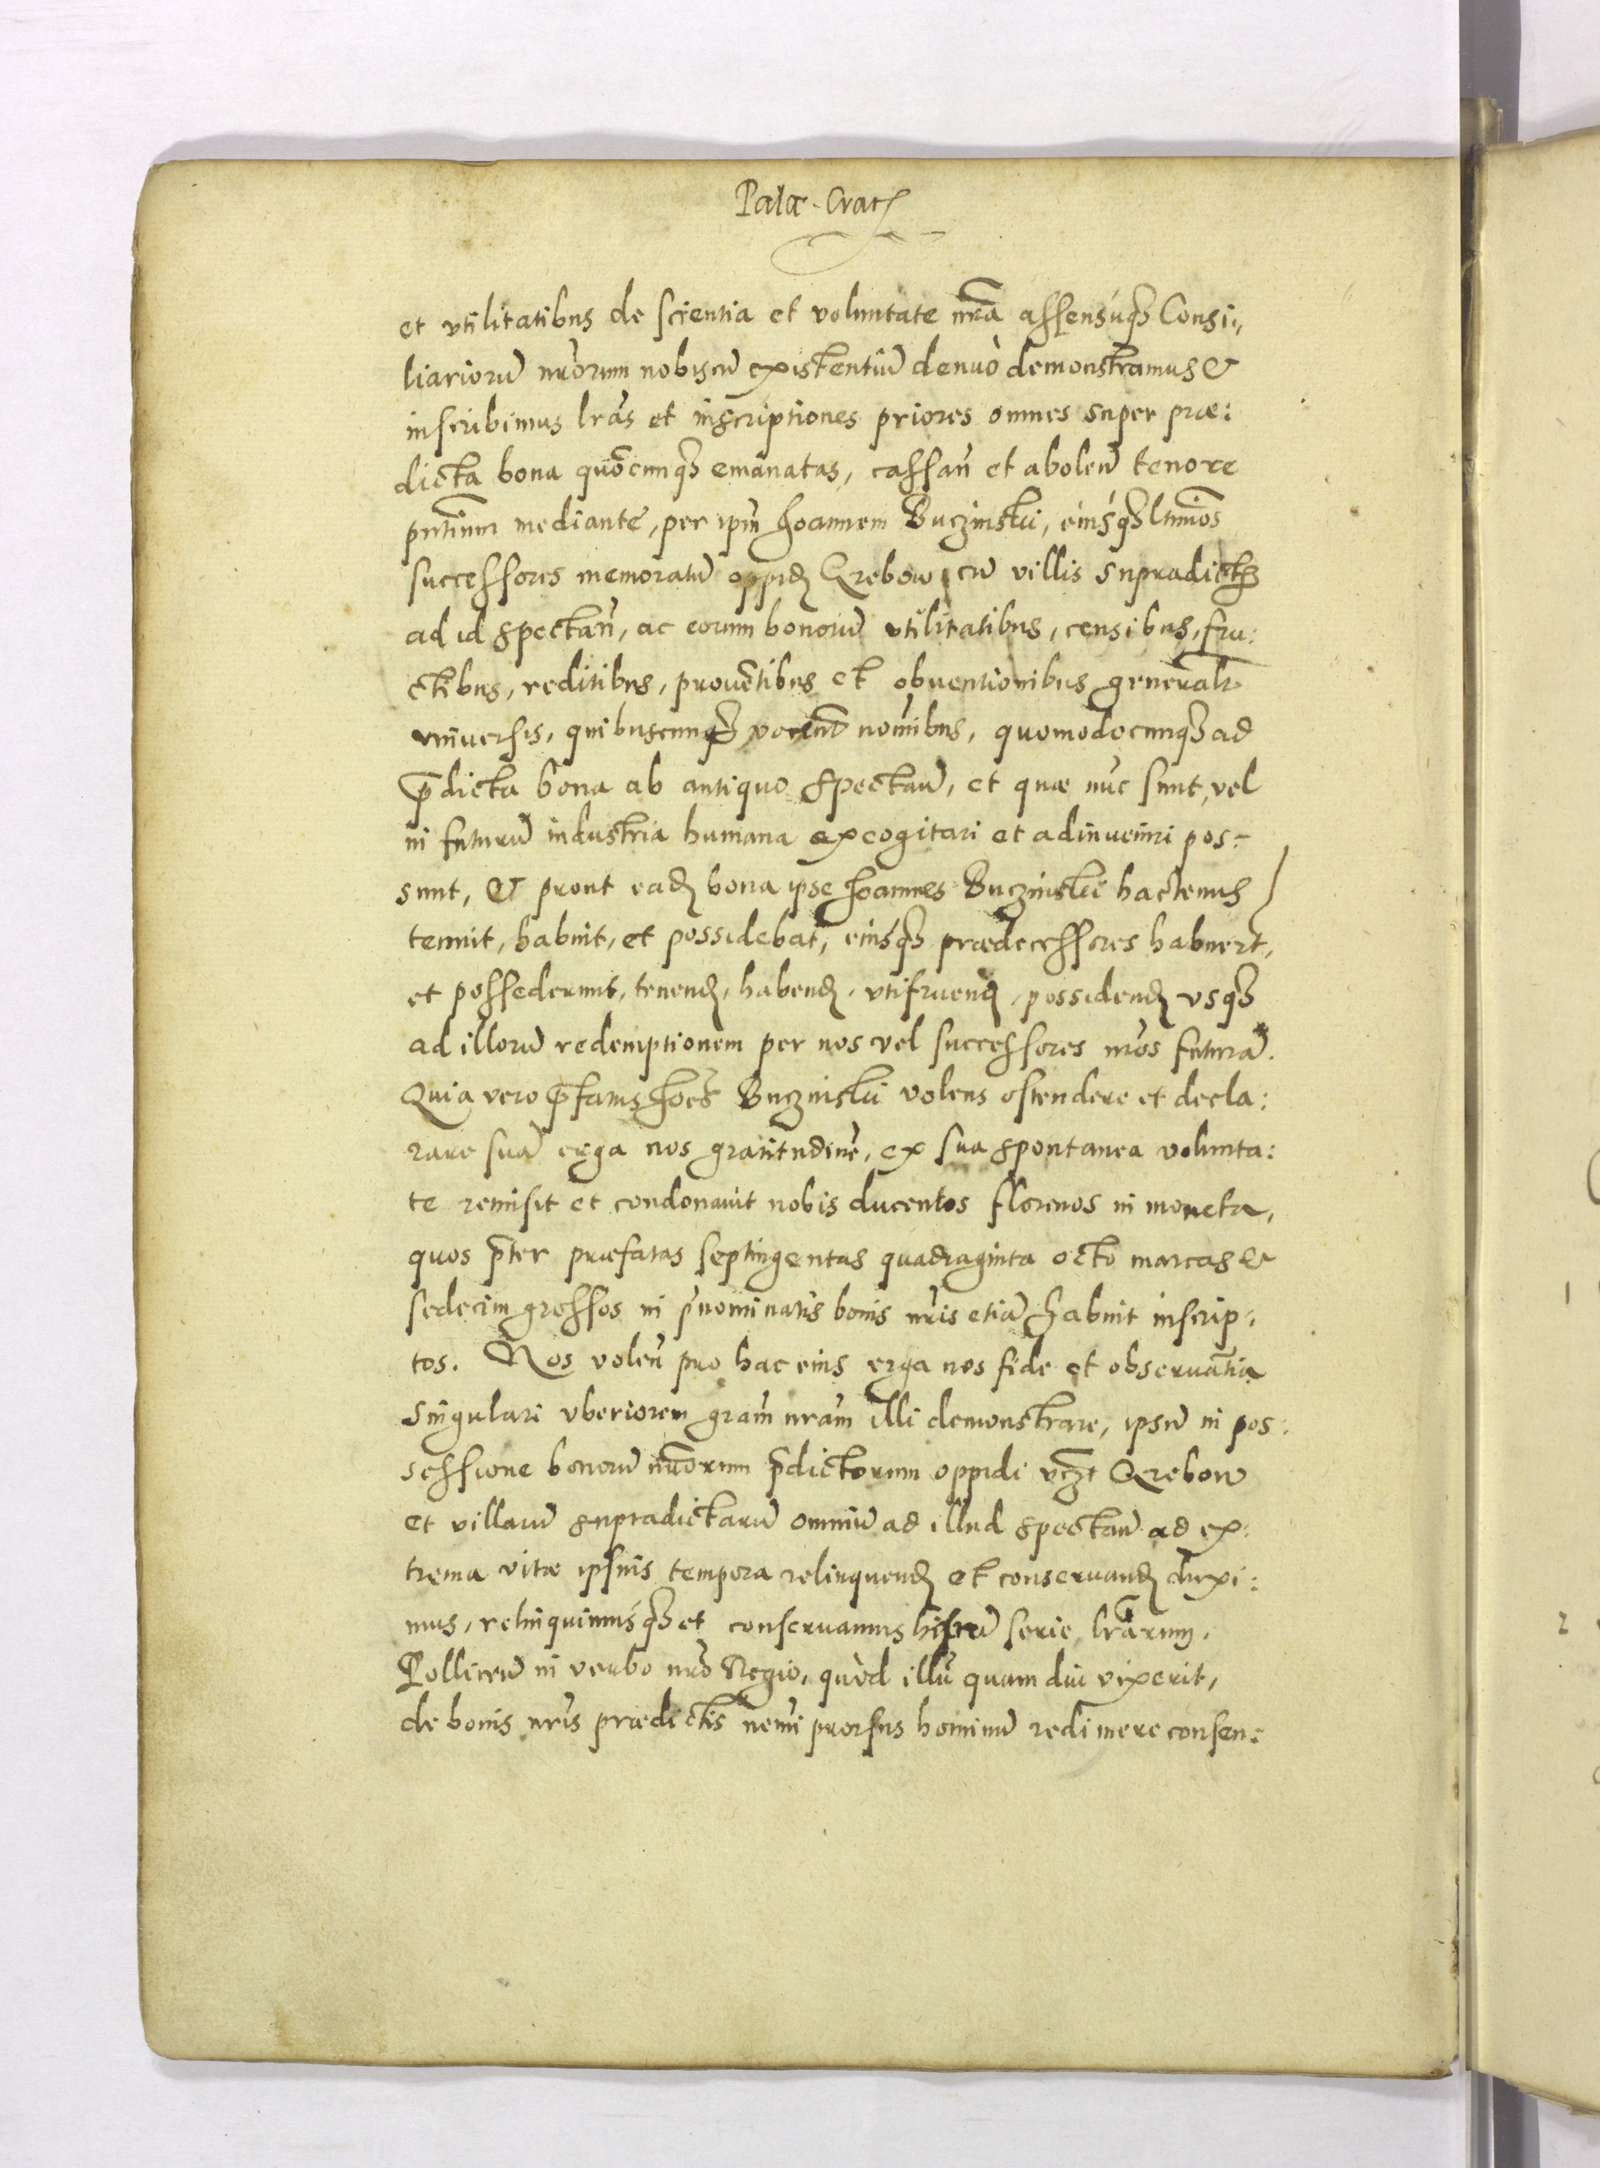 Palae Crac
et vtilitatibus de scientia et voluntate nr̃a assensuq3 Consi„
liarioru nr̃orum nobiscu existentiu denuò demonstramus &
inscribimus lr̃as et inscriptiones priores omnes super prae:
dicta bona quõcunq3 emanatas, cassan̄ et abolen̄ tenore
pn̄tium mediante, per ipm̄ Joannem Buczinskii, eiúsq3 ltimõs
successores memoratu oppid Grebow cu villis supradict
ad id spectan̄, ac eorum bonoru vtilitatibus, censibus, fru:
ctibus, reditibus, prouẽtibus et obuentionibus generalr
vniuersis, quibuscunq3 vocent nom̄ibus, quomodocunq3 ad
p̄dicta bona ab antiquo spectan̄, et quae nūc sunt, vel
in futuru industria humana excogitari et adinueniri pos:
sunt, & prout ead bona ipse Joannes Buczinskii hactenus
tenuit, habuit, et possidebat, eiúsq3 praedecessores habuert,
et possederunt, tenend, habend, vtifruend, possidend vsq3
ad illoru redemptionem per nos vel successores nr̃os futurā.
Quia vero p̄fatus Joēs Buczinskii volens ostendere et decla:
rare suā erga nos gratitudinē, ex sua spontanea volunta:
te remisit et condonauit nobis ducentos florenos in moneta,
quos p̄ter praefatas septingentas quadraginta octo marcas &
sedecim grossos in p̄nominatis bonis nr̃is etiā habuit inscrip:
tos. Nos volen̄ pro hac eius erga nos fide et obseruātia
singulari vberiorem gram̄ nr̃am illi demonstrare, ipsu in pos:
sessione bonoru nr̃orum p̄dictorum oppidi vczt Grebow
et villaru supradictaru omniu ad illud spectan̄ ad ex:
trema vitae ipsius tempora relinquend et conseruand duxi:
mus, relinquimúsq3 et conseruamus haru serie lr̃arum.
Pollicem̄ in verbo nr̃o Regio, quòd illū quam diu vixerit,
de bonis nr̃is praedictis nem̄i prorsus hominu redimere consen: